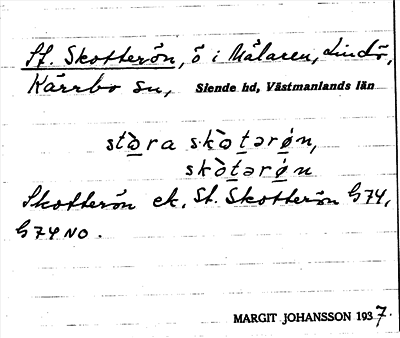 St. Skotterön, ö i Mälaren, Lindö,
Kärrbo sn, Siende hd, Västmanlands län
stò̱ra skò̱tərǿ̱n,
skò̱tərǿ̱n
Skotterön ek. St. Skotterön G74,
G74 NO.
MARGIT JOHANSSON 1937.